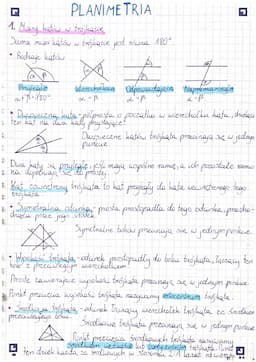 PLANIMETRIA
1. Miary kątów w trójkącie
Suma miar kątów w trójkącie jest równa 180°
• Rodzaje kątów
Przyległe Wierzchołkowe Odpowiadające Naprzemianległe
α+β=180° α=β α=β α=β
• Dwusieczna kąta - półprosta o początku w wierzchołku kąta, dzieląca
ten kąt na dwa kąty przystające
Dwusieczne kątów trójkąta przecinają się w jednym
punkcie.
Dwa kąty są przyległe, jeśli mają wspólne ramię, a ich pozostałe ramiona
dopełniają się do prostej
Kąt zewnętrzny trójkąta to kąt przyległy do kąta wewnętrznego tego
trójkąta.
• Symetralna odcinka - prosta prostopadła do tego odcinka, przecho-
dząca przez jego środek.
Symetralne boków przecinają się w jednym punkcie.
• Wysokość trójkąta - odcinek prostopadły do boku trójkąta, łączący ten
bok z przeciwległym wierzchołkiem
Proste zawierające wysokości trójkąta przecinają się w jednym punkcie.
Punkt przecięcia wysokości trójkąta nazywamy ortocentrum trójkąta.
• Środkowa trójkąta - odcinek łączący wierzchołek trójkąta ze środkiem
przeciwległego boku.
Środkowe trójkąta przecinają się w jednym punkcie
Punkt przecięcia środkowych trójkąta nazywamy
środkiem ciężkości trójkąta. Punkt
ten dzieli każdą ze środkowych w stosunku 2:1 licząc od wierz.